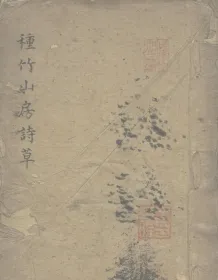 種竹山房詩草